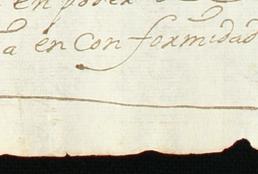 en poder
a en conformidad